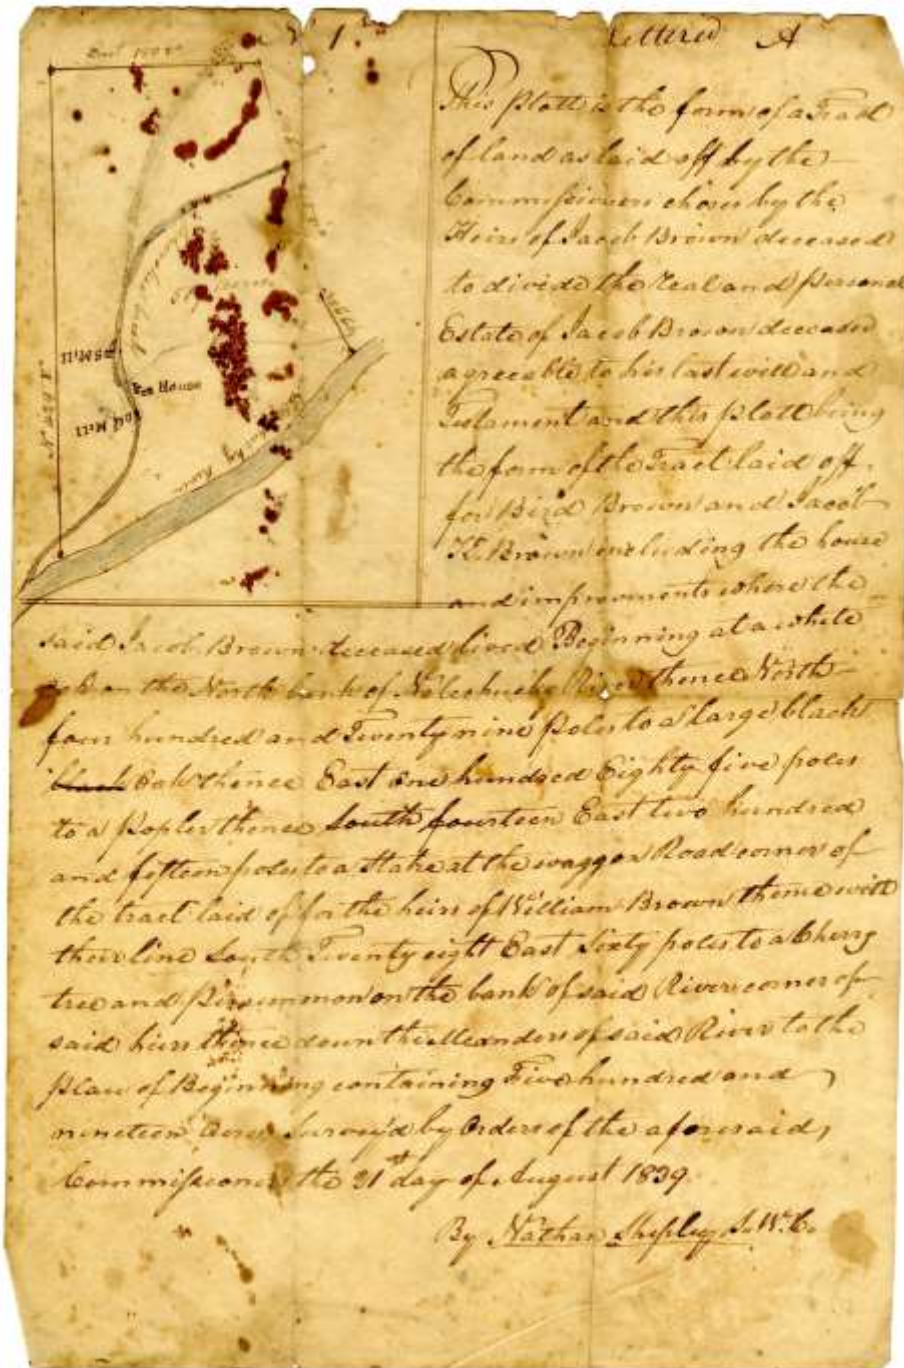 1 Lettered A
East 185 P.
This Platt is the form of a Tract
of land as laid off by the
Commissioners chosen by the
Heirs of Jacob Brown deceased
to divide the real and personal
Estate of Jacob Brown deceased
agreeable to his last will and
Testament and this platt being
the form of the Tract laid off
for Bird Brown and Jacob
Brown including the house
and improvements where the
said Jacob Brown deceased lived Beginning at a white
oak on the North bank of Nolechucky River thence North
four hundred and Twenty nine poles to a large black
black Oak thence East one hundred Eighty five poles
to a Popler thence South fourteen East two hundred
and fifteen poles to a Stake at the waggon Road corner of
the tract laid of for the heirs of William Brown thence with
their line South Twenty eight East Sixty poles to a Cherry
tree and Persummon on the bank of said River corner of
said heirs thence down the Meanders of said River to the
place of Beginning containing Five hundred and
nineteen acres Survey'd by Orders of the aforesaid
Commissioners the 21st day of August 1839
By Nathan Shipley S. W. C.
S Mill
House
Old Mill
River